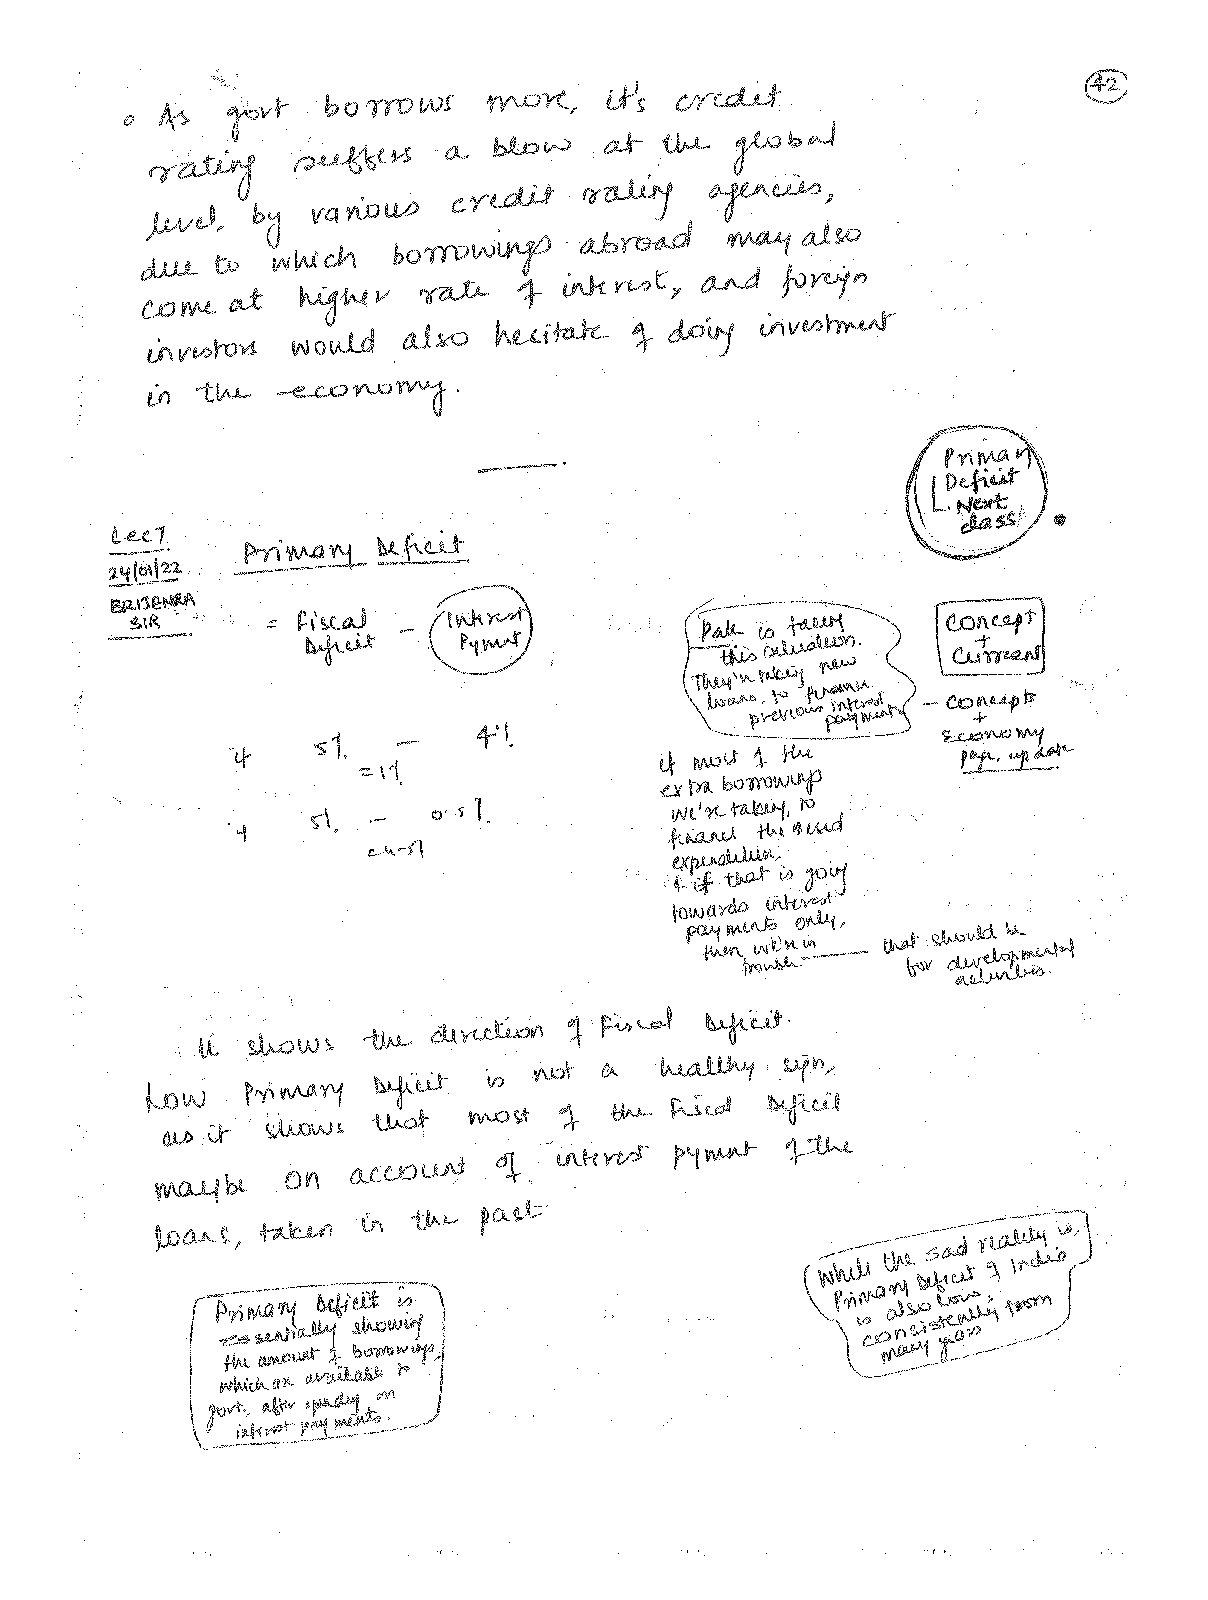 42
As govt borrows more, it's credit
rating suffers a blow at the global
level, by various credit rating agencies,
due to which borrowings abroad may also
come at higher rate of interest, and foreign
investors would also hecitate of doing investment
in the economy.
Primary
Deficit
Next
class
Lec 7
24/01/22
BRIJENRA
SIR
Primary Deficit
= Fiscal Deficit - Interest Pymnt
5% - 4%
= 1%
5% - 0.5%
= 4.5%
Pak is facing
this situation.
They're taking new
loans, to finance
previous interest
payments
Concept
+
Current
- concepts
+
Economy
paper, update
if most of the
extra borrowings
we're taking, to
finance the
expenditure,
& if that is going
towards interest
payments only,
then we're in
trouble
that should be
for developmental
activities.
It shows the direction of Fiscal Deficit.
Low Primary Deficit is not a healthy sign,
as it shows that most of the Fiscal Deficit
maybe on account of interest pymnt of the
loans, taken in the past
While the sad reality is,
Primary Deficit of India
is also low,
consistently from
many years
Primary Deficit is
essentially showing
the amount of borrowings,
which are available to
govt, after spending on
interest payments.